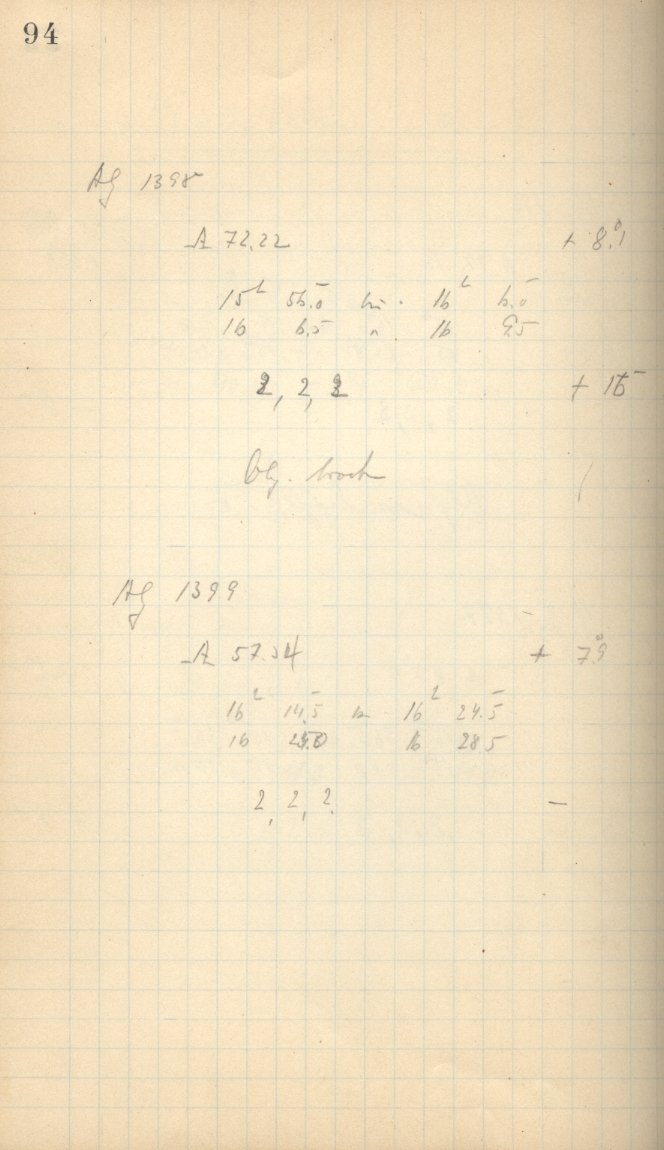 94
Ag 1398
A 72.22 + 8.°1
15ʰ 56.0 bis 16ʰ 6.0
16 6.5 " 16 9.5
2, 2, 2 + 16
Obj.
Ag 1399
A 57.54 + 7.°9
16ʰ 14.5 16ʰ 24.5
16 16 28.5
2, 2, 2. –